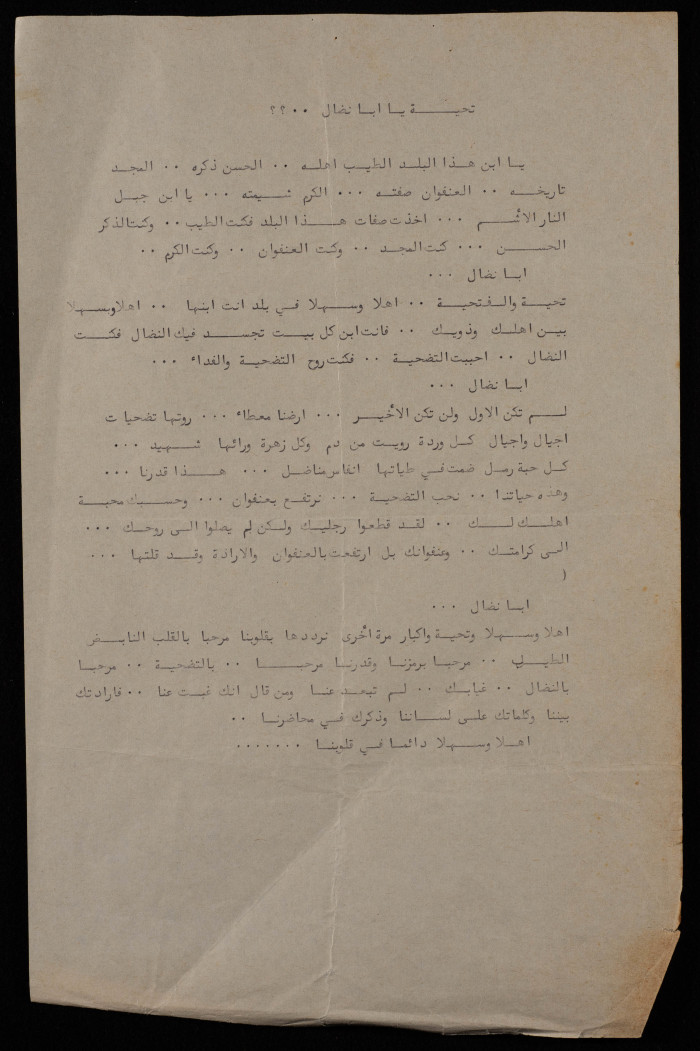 تحيـــة يا ابا نضال ..؟؟
يا ابن هذا البلد الطيب اهله .. الحسن ذكره .. المجد
تاريخه .. العنفوان صفته ... الكرم شيمته ... يا ابن جبل
النار الاشم ... اخذت صفات هذا البلد فكنت الطيب .. وكنت الذكر
الحسن ... كنت المجد .. وكنت العنفوان .. وكنت الكرم ..
ابا نضال ...
تحية والف تحية .. اهلا وسهلا في بلد انت ابنها .. اهلا وسهلا
بين اهلك وذويك .. فانت ابن كل بيت تجسد فيك النضال فكنت
النضال .. احببت التضحية .. فكنت روح التضحية والفداء ...
ابا نضال ...
لم تكن الاول ولن تكن الأخير ... ارضنا معطاء ... روتها تضحيات
اجيال واجيال كل وردة رويت من دم وكل زهرة ورائها شهيد ...
كل حبة رمل ضمت في طياتها انفاس مناضل ... هذا قدرنا ...
وهذه حياتنا .. نحب التضحية ... نرتفع بعنفوان ... وحسبك محبة
اهلك لك .. لقد قطعوا رجليك ولكن لم يصلوا الى روحك ...
الى كرامتك .. وعنفوانك بل ارتفعت بالعنفوان والارادة وقد قلتها ...
(
ابا نضال ...
اهلا وسهلا وتحية واكبار مرة أخرى نرددها بقلوبنا مرحبا بالقلب النابض
الطيب .. مرحبا برمزنا وقدرنا مرحبا .. بالتضحية .. مرحبا
بالنضال .. غيابك .. لم تبعد عنا ومن قال انك غبت عنا .. فارادتك
بيننا وكلماتك على لساننا وذكرك في محاضرنا ..
اهلا وسهلا دائما في قلوبنا .......